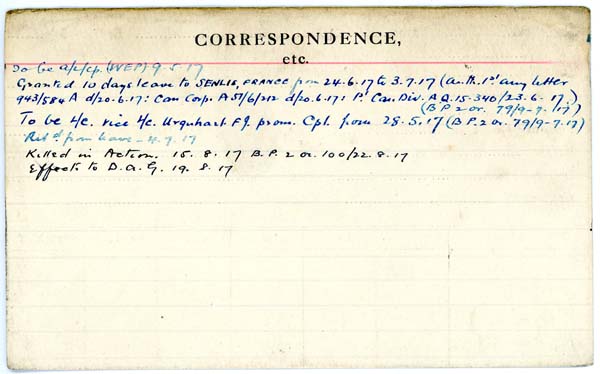 CORRESPONDENCE,
etc.
To be a/l/cp. (WEP) 9.5.17
Granted 10 days leave to SENLIS, FRANCE from 24-6.17 to 3.7.17 (auth. 1st army letter
943/584 A d/20.6.17: Can Corp. A 57/6/212 d/20.6.17: 1st Can. Div. A.Q. 15-340/23.6.17.)
(B.P. 2 or. 79/9-7.17)
To be l/c. vice l/c. Urquhart F.J. prom. Cpl. from 28.5.17 (B.P. 2 or. 79/9-7.17)
Ret'd from leave - 4.7.17
Killed in Action. 15.8.17 B.P. 2 or. 100/22.8.17
Effects to D.A.G. 19.8.17